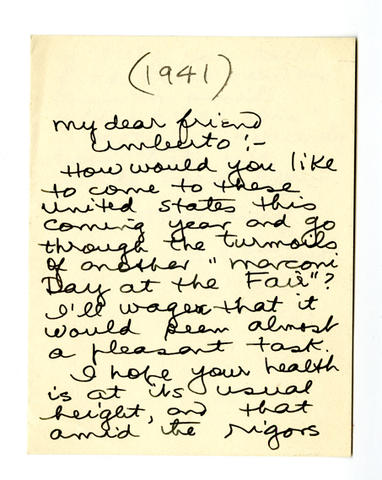 (1941)
my dear friend
Umberto:-
How would you like
to come to these
united states this
coming year and go
through the turmoils
of another "marconi
Day at the Fair"?
I'll wager that it
would seem almost
a pleasant task.
I hope your health
is at its usual
height, and that
amid the rigors